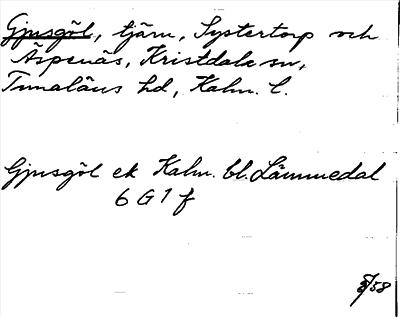 Gjusgöl, tjärn, Systertorp och
Äspenäs, Kristdala sn,
Tunaläns hd, Kalm. l.
Gjusgöl ek Kalm. bl. Lämmedal
6 G 1 f
/58